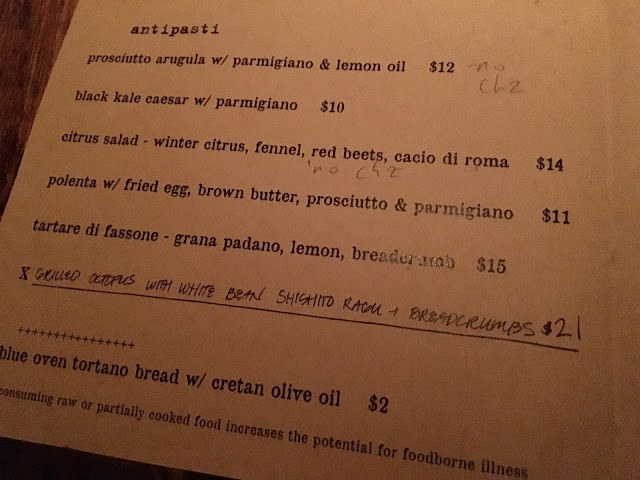 antipasti
prosciutto arugula w/ parmigiano & lemon oil $12 -no
chz
black kale caesar w/ parmigiano $10
citrus salad - winter citrus, fennel, red beets, cacio di roma $14
no chz
polenta w/ fried egg, brown butter, prosciutto & parmigiano $11
tartare di fassone - grana padano, lemon, breadcrumb $15
X GRILLED OCTOPUS WITH WHITE BEAN SHISHITO RAGU + BREADCRUMBS $21
++++++++++++++++
blue oven tortano bread w/ cretan olive oil $2
consuming raw or partially cooked food increases the potential for foodborne illness